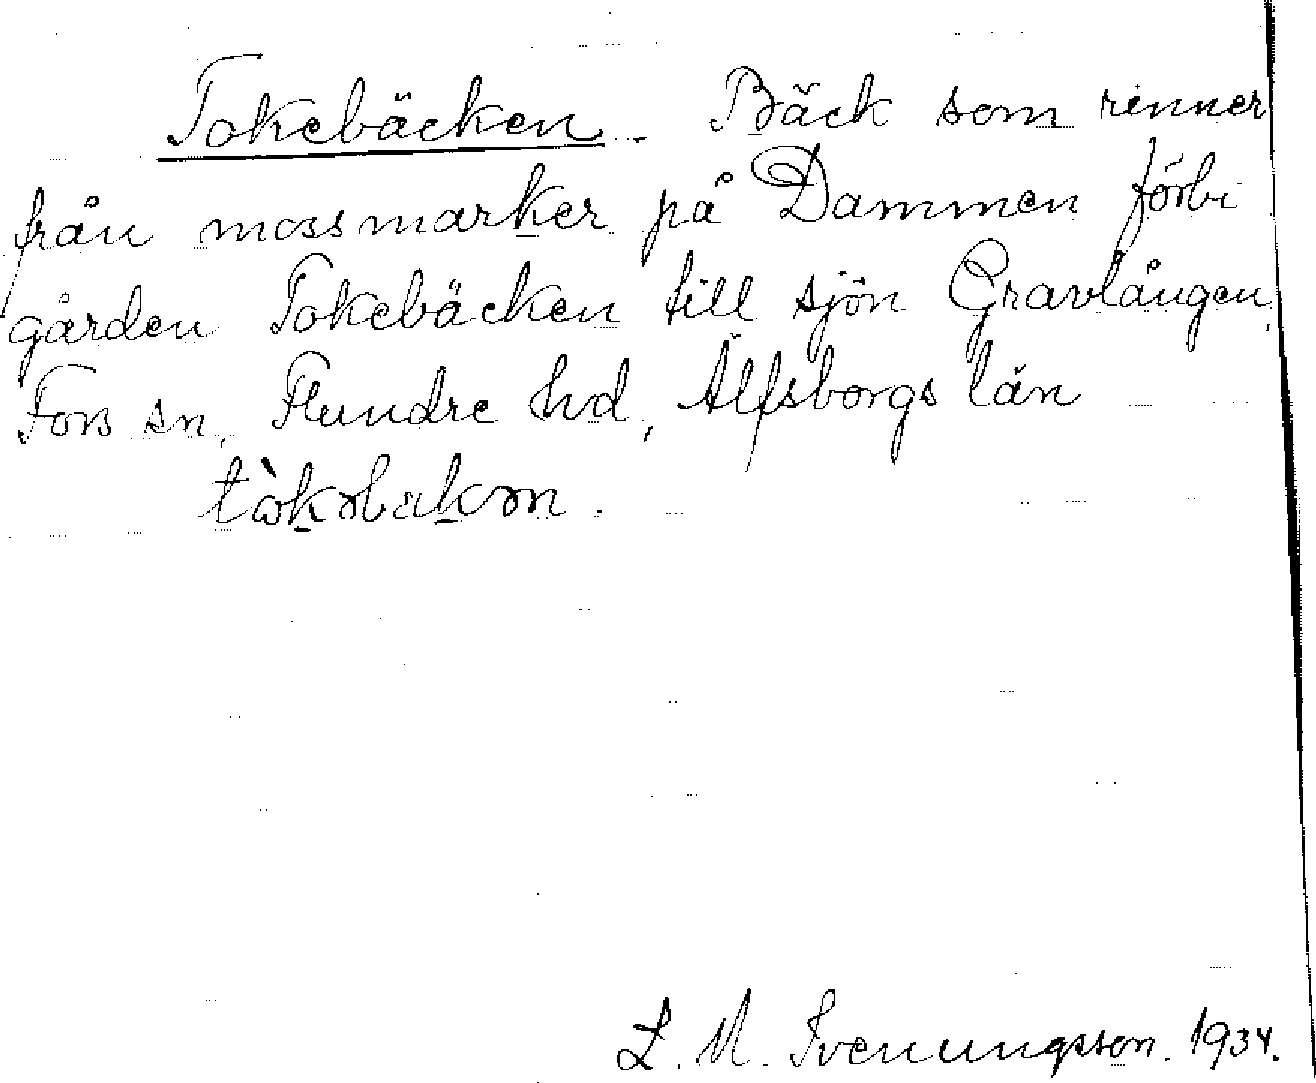 Tokebäcken. Bäck som rinner
från mossmarker på Dammen förbi
gården Tokebäcken till sjön Gravlången,
Fors sn, Flundre hd, Älfsborgs län
L. M. Svenungsson. 1934.